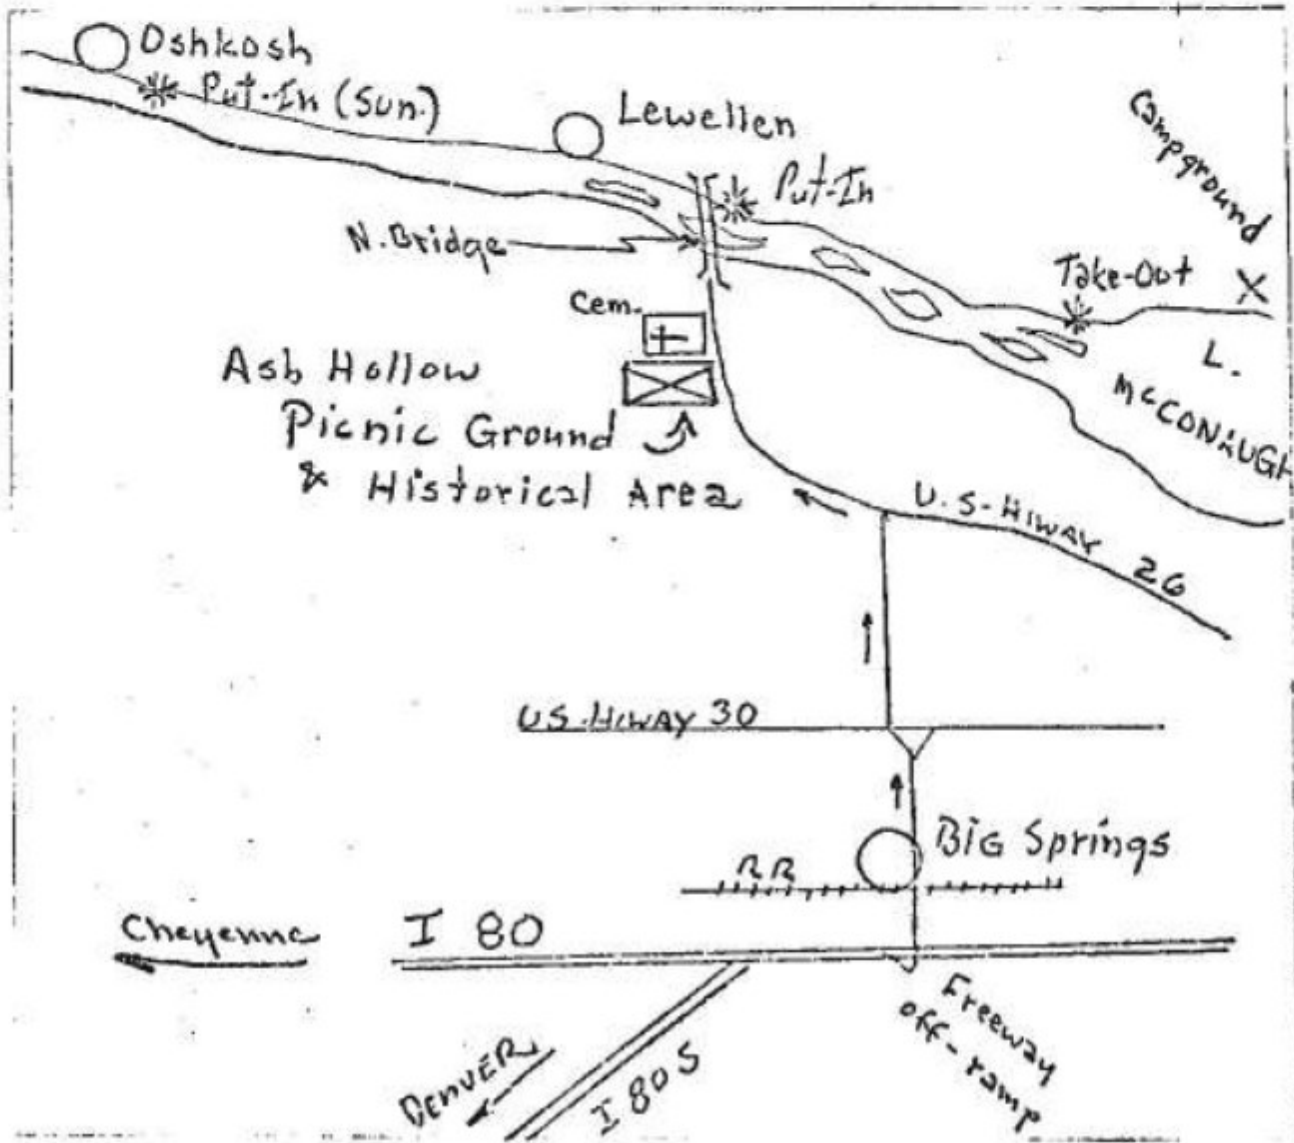 Oshkosh
Put-In (Sun.)
Lewellen
Put-In
Campground
N. Bridge
Take-Out
X
Cem.
L.
McCONAUGH
Ash Hollow
Picnic Ground
& Historical Area
U.S-HIWAY 26
US.HIWAY 30
BIG Springs
RR
Cheyenne
I 80
Freeway
off-ramp
DENVER
I 80 S